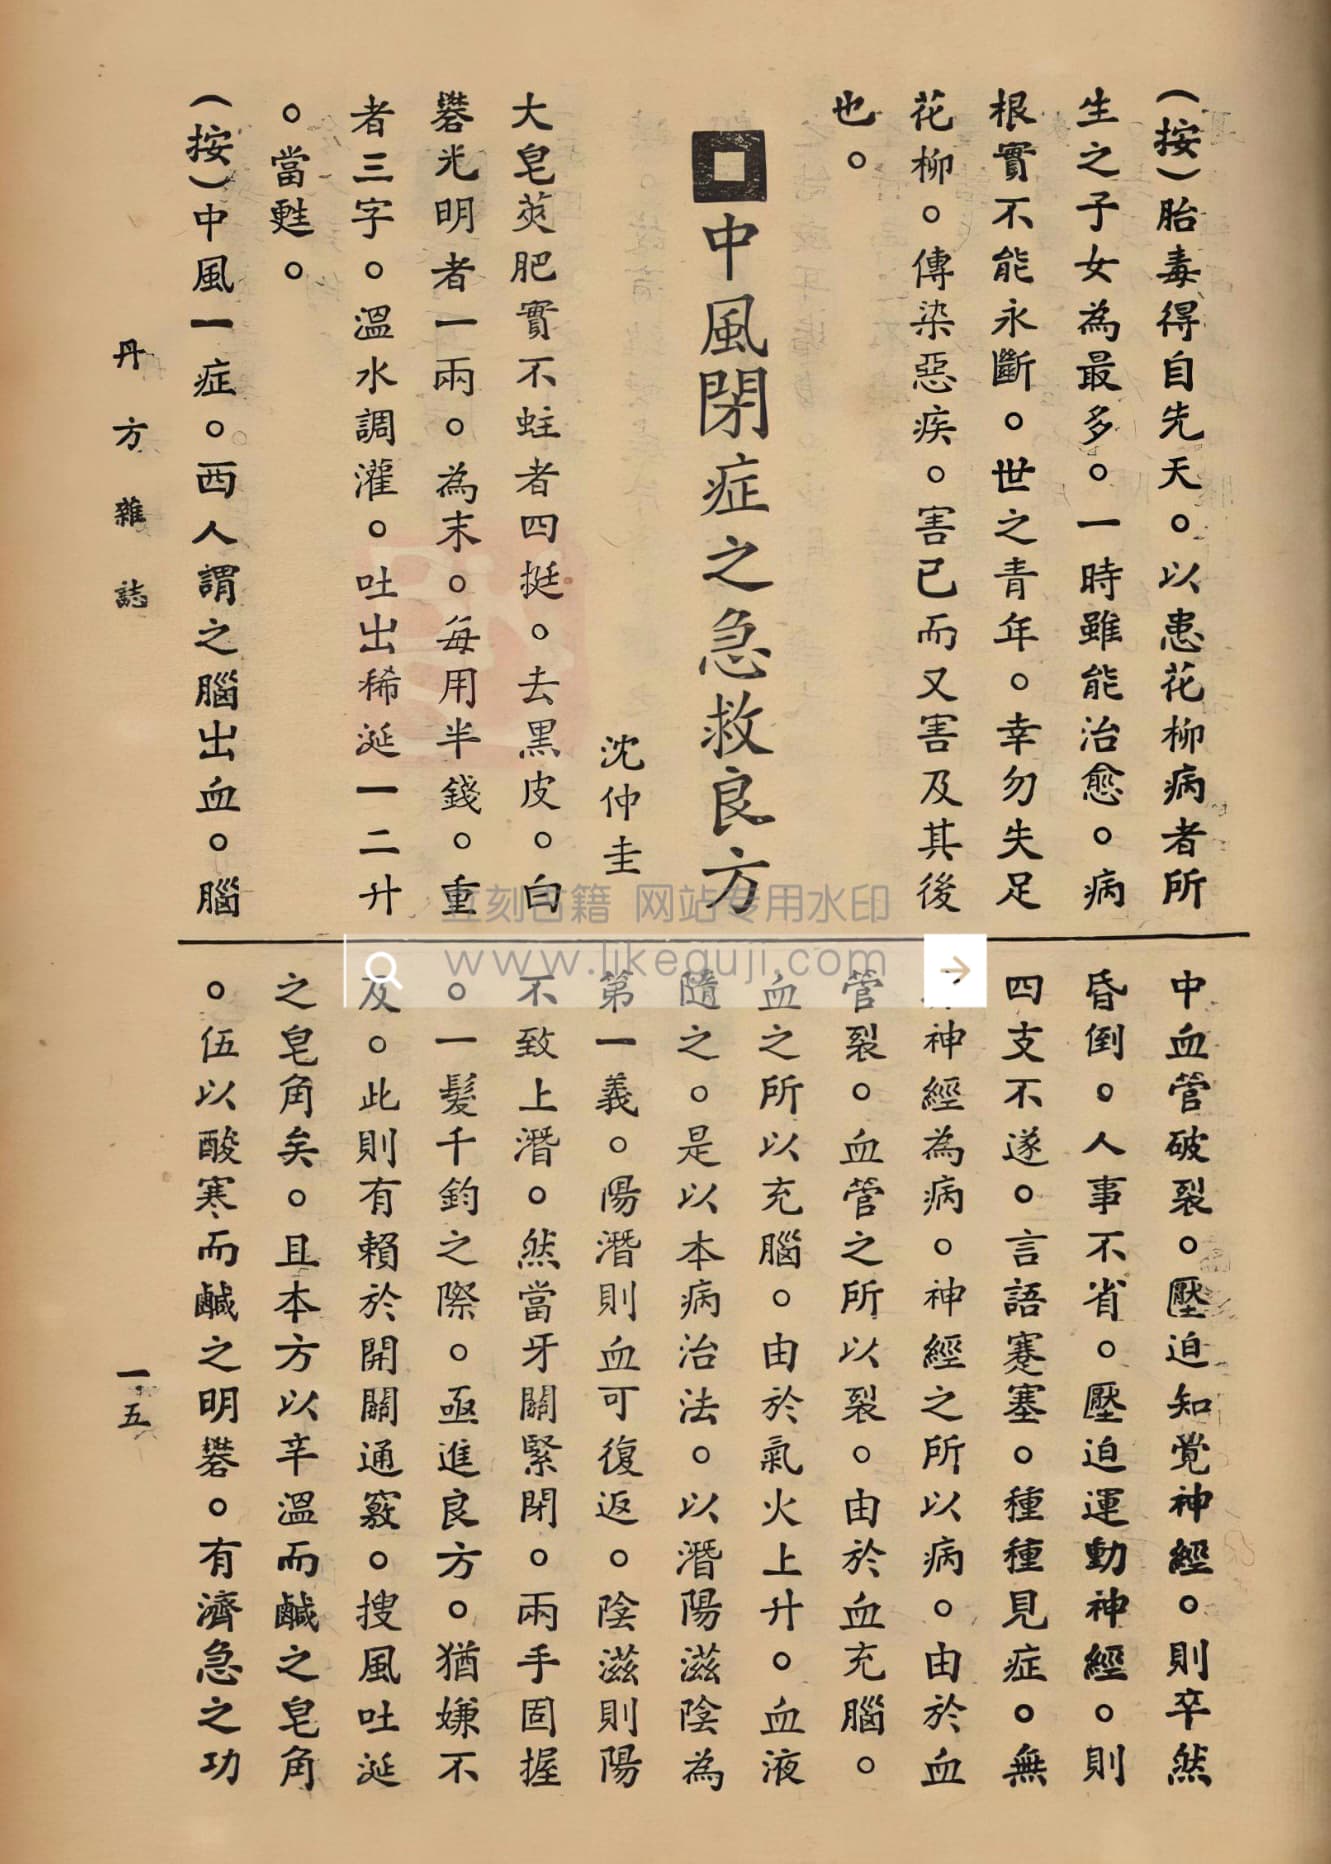 (按)胎毒得自先天。以患花柳病者所
生之子女為最多。一時雖能治愈。病
根實不能永斷。世之青年。幸勿失足
花柳。傳染惡疾。害已而又害及其後
也。
中風閉症之急救良方
沈仲圭
大皂莢肥實不蛀者四挺。去黑皮。白
礬光明者一兩。為末。每用半錢。重
者三字。溫水調灌。吐出稀涎一二升
。當甦。
(按)中風一症。西人謂之腦出血。腦
中血管破裂。壓迫知覺神經。則卒然
昏倒。人事不省。壓迫運動神經。則
四支不遂。言語蹇塞。種種見症。無
神經為病。神經之所以病。由於血
管裂。血管之所以裂。由於血充腦。
血之所以充腦。由於氣火上升。血液
隨之。是以本病治法。以潛陽滋陰為
第一義。陽潛則血可復返。陰滋則陽
不致上潛。然當牙關緊閉。兩手固握
。一髮千鈞之際。亟進良方。猶嫌不
及。此則有賴於開關通竅。搜風吐涎
之皂角矣。且本方以辛溫而鹹之皂角
。伍以酸寒而鹹之明礬。有濟急之功
丹方雜誌
一五
立刻古籍 网站专用水印
www.likeguji.com